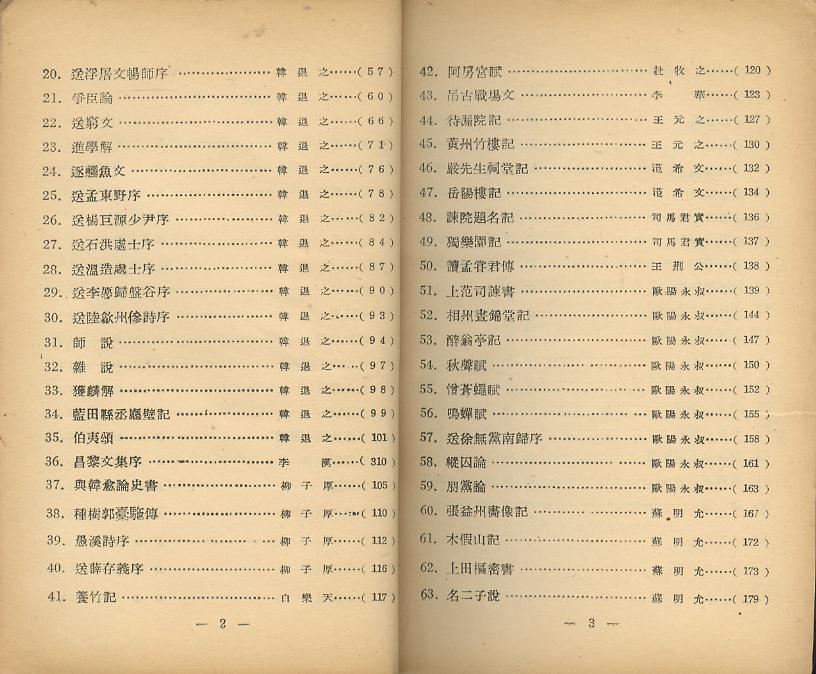 20. 送浮屠文暢師序 ⋯⋯ 韓退之⋯⋯( 57 )
21. 爭臣論 ⋯⋯ 韓退之⋯⋯( 60 )
22. 送窮文 ⋯⋯ 韓退之⋯⋯( 66 )
23. 進學解 ⋯⋯ 韓退之⋯⋯( 71 )
24. 逐鱷魚文 ⋯⋯ 韓退之⋯⋯( 76 )
25. 送孟東野序 ⋯⋯ 韓退之⋯⋯( 78 )
26. 送楊巨源少尹序 ⋯⋯ 韓退之⋯⋯( 82 )
27. 送石洪處士序 ⋯⋯ 韓退之⋯⋯( 84 )
28. 送溫造處士序 ⋯⋯ 韓退之⋯⋯( 87 )
29. 送李愿歸盤谷序 ⋯⋯ 韓退之⋯⋯( 90 )
30. 送陸歙州傪詩序 ⋯⋯ 韓退之⋯⋯( 93 )
31. 師說 ⋯⋯ 韓退之⋯⋯( 94 )
32. 雜說 ⋯⋯ 韓退之⋯⋯( 97 )
33. 獲麟解 ⋯⋯ 韓退之⋯⋯( 98 )
34. 藍田縣丞廳壁記 ⋯⋯ 韓退之⋯⋯( 99 )
35. 伯夷頌 ⋯⋯ 韓退之⋯⋯( 101 )
36. 昌黎文集序 ⋯⋯ 李漢⋯⋯( 310 )
37. 與韓愈論史書 ⋯⋯ 柳子厚⋯⋯( 105 )
38. 種樹郭橐駝傳 ⋯⋯ 柳子厚⋯⋯( 110 )
39. 愚溪詩序 ⋯⋯ 柳子厚⋯⋯( 112 )
40. 送薛存義序 ⋯⋯ 柳子厚⋯⋯( 116 )
41. 養竹記 ⋯⋯ 白樂天⋯⋯( 117 )
— 2 —
42. 阿房宮賦 ⋯⋯ 杜牧之⋯⋯( 120 )
43. 吊古戰場文 ⋯⋯ 李華⋯⋯( 123 )
44. 待漏院記 ⋯⋯ 王元之⋯⋯( 127 )
45. 黃州竹樓記 ⋯⋯ 王元之⋯⋯( 130 )
46. 嚴先生祠堂記 ⋯⋯ 范希文⋯⋯( 132 )
47. 岳陽樓記 ⋯⋯ 范希文⋯⋯( 134 )
48. 諫院題名記 ⋯⋯ 司馬君實⋯⋯( 136 )
49. 獨樂園記 ⋯⋯ 司馬君實⋯⋯( 137 )
50. 讀孟嘗君傳 ⋯⋯ 王荆公⋯⋯( 138 )
51. 上范司諫書 ⋯⋯ 歐陽永叔⋯⋯( 139 )
52. 相州晝錦堂記 ⋯⋯ 歐陽永叔⋯⋯( 144 )
53. 醉翁亭記 ⋯⋯ 歐陽永叔⋯⋯( 147 )
54. 秋聲賦 ⋯⋯ 歐陽永叔⋯⋯( 150 )
55. 憎蒼蠅賦 ⋯⋯ 歐陽永叔⋯⋯( 152 )
56. 鳴蟬賦 ⋯⋯ 歐陽永叔⋯⋯( 155 )
57. 送徐無黨南歸序 ⋯⋯ 歐陽永叔⋯⋯( 158 )
58. 縱囚論 ⋯⋯ 歐陽永叔⋯⋯( 161 )
59. 朋黨論 ⋯⋯ 歐陽永叔⋯⋯( 163 )
60. 張益州畵像記 ⋯⋯ 蘇明允⋯⋯( 167 )
61. 木假山記 ⋯⋯ 蘇明允⋯⋯( 172 )
62. 上田樞密書 ⋯⋯ 蘇明允⋯⋯( 173 )
63. 名二子說 ⋯⋯ 蘇明允⋯⋯( 179 )
— 3 —